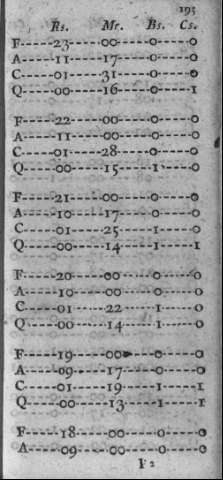 195
Rs. Mr. Bs. Cs.
F-----23-----00-----0-----0
A-----11-----17-----0-----0
C-----01-----31-----0-----0
Q-----00-----16-----0-----1
F-----22-----00-----0-----0
A-----11-----00-----0-----0
C-----01-----28-----0-----0
Q-----00-----15-----1-----0
F-----21-----00-----0-----0
A-----10-----17-----0-----0
C-----01-----25-----1-----0
Q-----00-----14-----1-----1
F-----20-----00-----0-----0
A-----10-----00-----0-----0
C-----01-----22-----1-----0
Q-----00-----14-----1-----0
F-----19-----00-----0-----0
A-----09-----17-----0-----0
C-----01-----19-----1-----1
Q-----00-----13-----1-----1
F-----18-----00-----0-----0
A-----09-----00-----0-----0
F 2